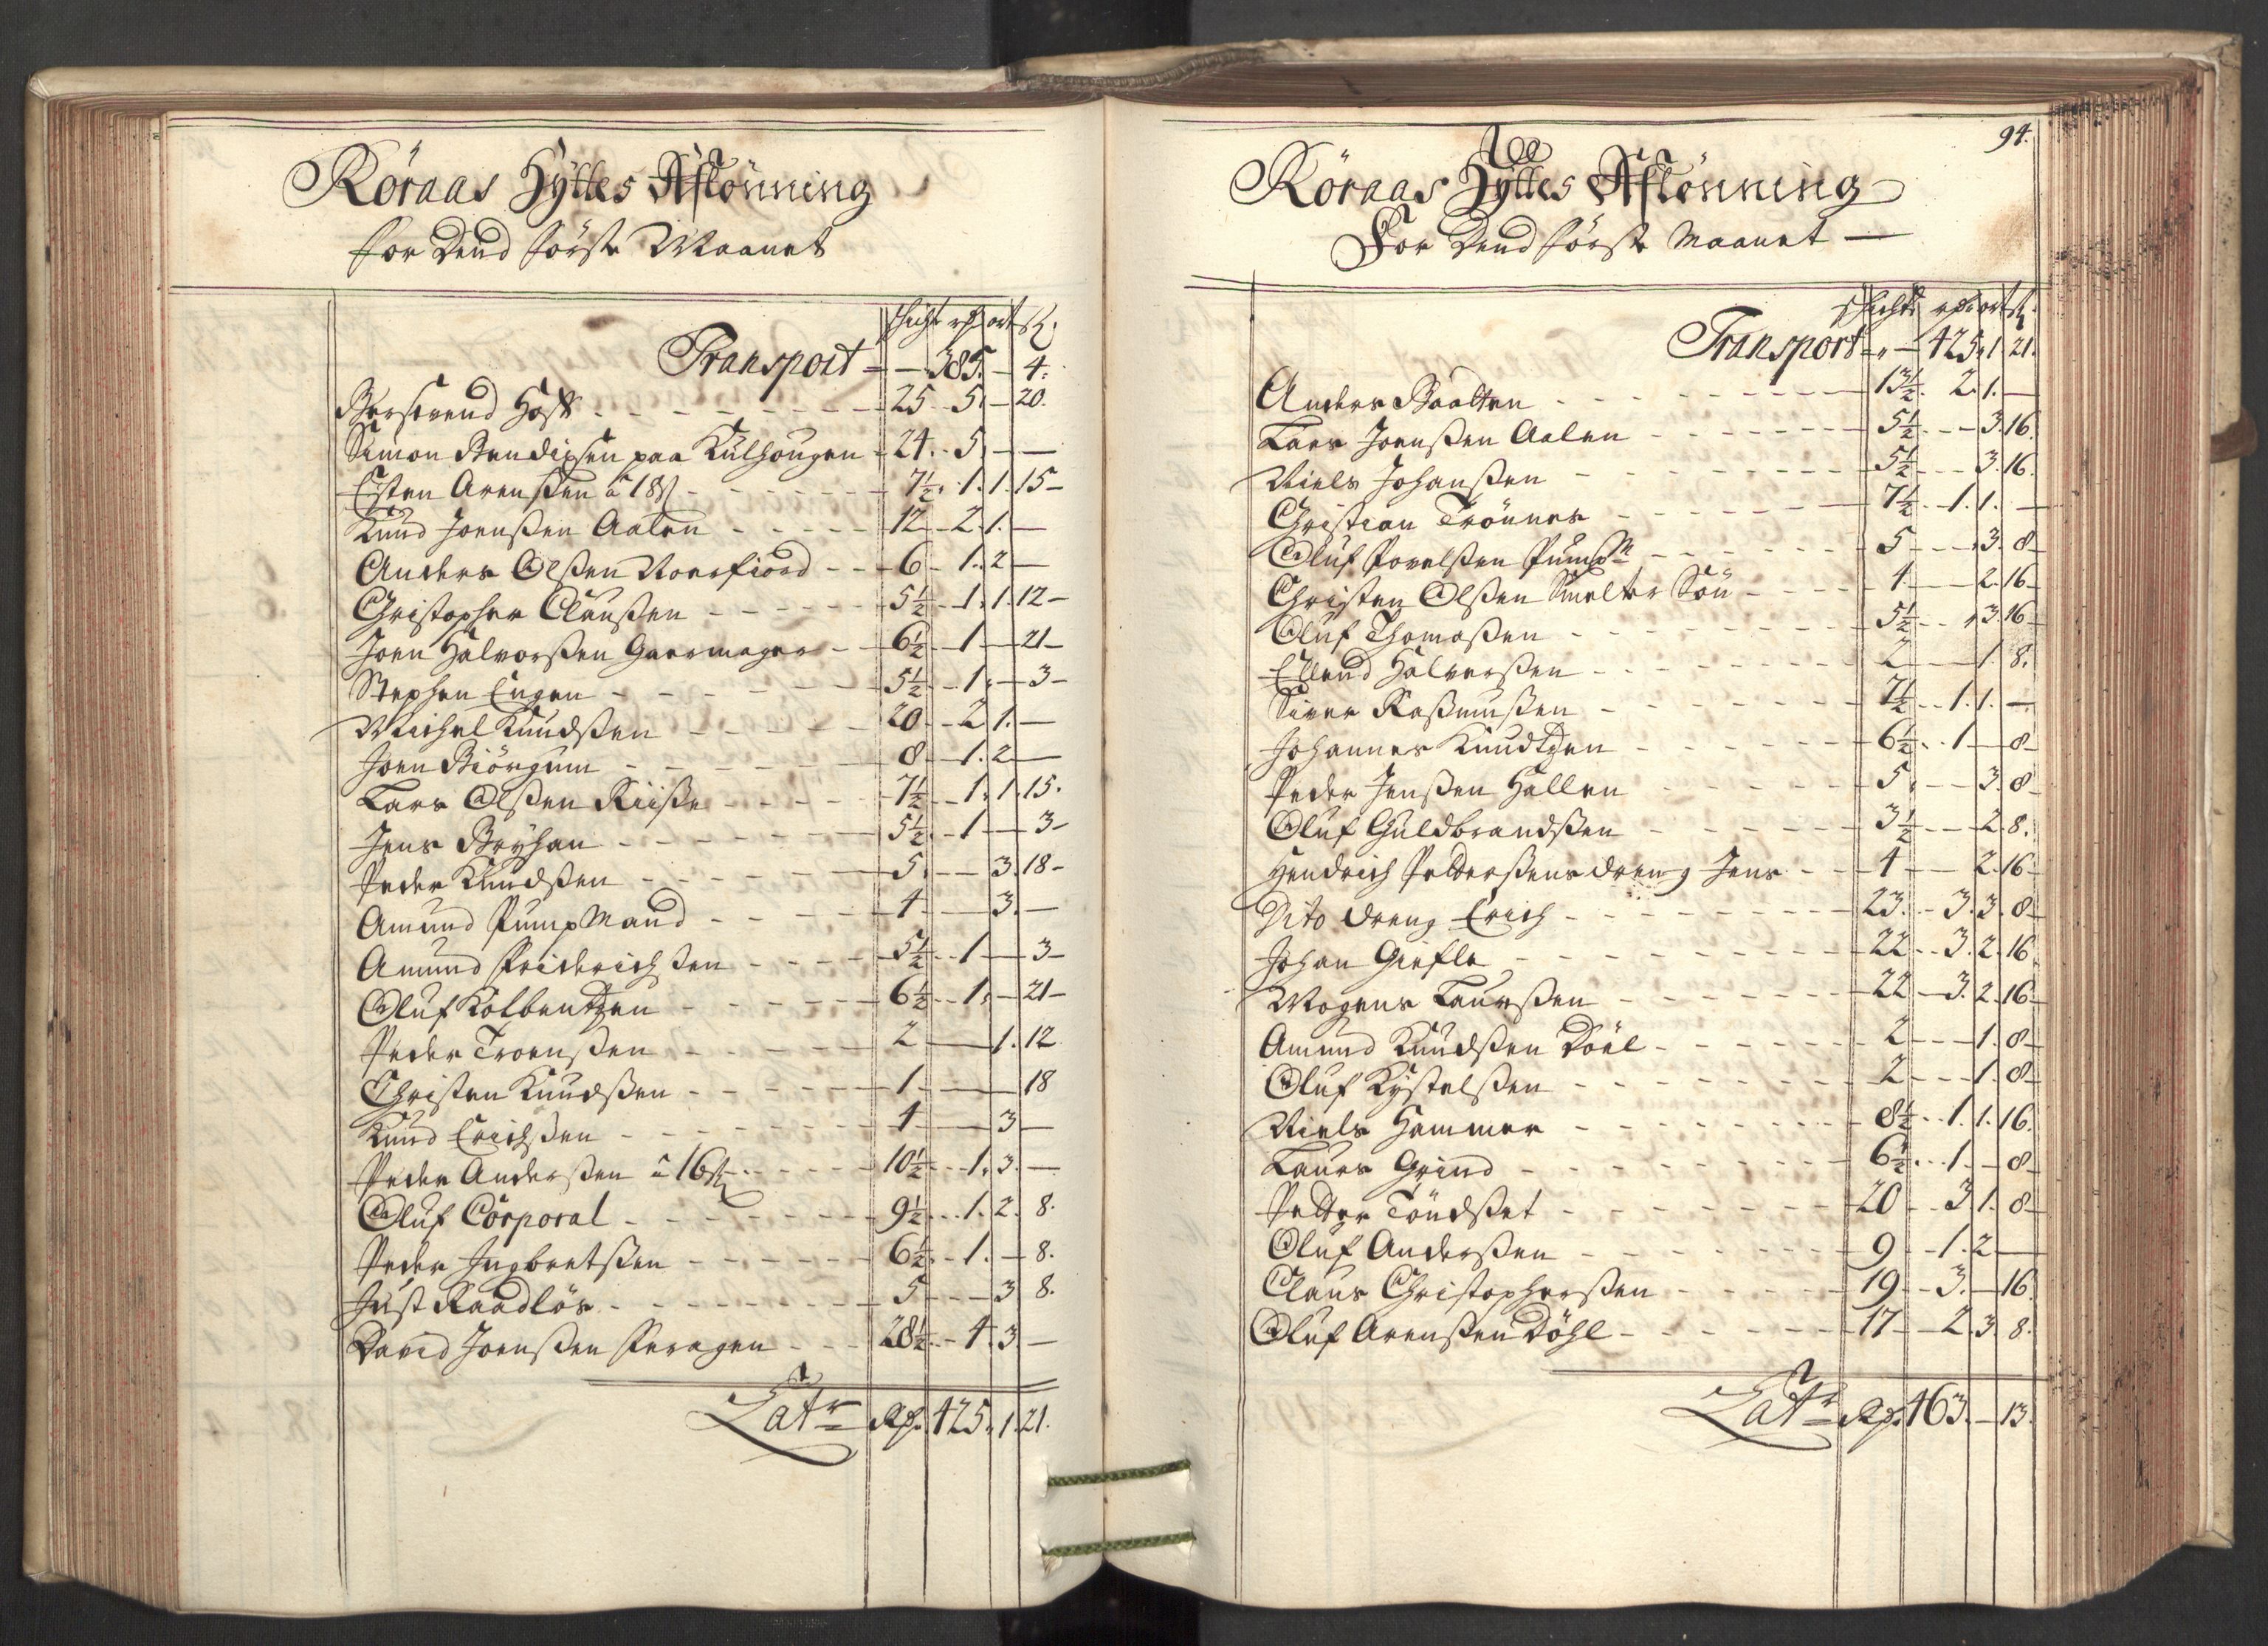 Röraas Hÿttes Aflönning
for Dend förste Maanet
schicht rd ort s
Transport - - 385 - 4
25 5 - 20
Simon Bendixsen paa Kulhougen 24 5 - -
Esten Arenssen â 18 s 7½ 1 1 15
Knud Joenssen Aalen 12 2 1 -
Anders Olssen 6 1 2 -
Christopher Claussen 5½ 1 1 12
Joen Halvorssen Gaermager 6½ 1 - 21
Stephen Engen 5½ 1 - 3
Michel Knudssen 20 2 1 -
Joen Biörgum 8 1 2 -
Lars Olssen Riise 7½ 1 1 15
Jens Brÿhan 5½ 1 - 3
Peder Knudssen 5 - 3 18
Amund Pump Mand 4 - 3 -
Amund Friderichssen 5½ 1 - 3
Oluf Kolbentzen 6½ 1 - 21
Peder Troenssen 2 - 1 12
Christen Knudssen 1 - - 18
Knud Erichssen 4 - 3 -
Peder Anderssen â 16 s 10½ 1 3 -
Oluf Corporal 9½ 1 2 8
Peder Ingbretssen 6½ 1 - 8
Just Raadlös 5 - 3 8
David Joenssen Feragen 28½ 4 3 -
Latr Rd 425 1 21
94.
Röraas Hÿttes Aflönning
For Dend förste Maanet
schicht rd ort s
Transport - 425 1 21
Anders Baatten 13½ 2 1 -
Lars Joenssen Aalen 5½ - 3 16
Niels Johanssen 5½ - 3 16
Christian Trönnes 7½ 1 1 -
Oluf Povelssen Pumpm 5 - 3 8
Christen Olssen Smelter Sön 4 - 2 16
Oluf Thomassen 5½ - 3 16
Ellend Halvorssen 2 - 1 8
Siver Rasmussen 7½ 1 1 -
Johannes Knudtzen 6½ 1 - 8
Peder Jenssen Hallen 5 - 3 8
Oluf Guldbrandssen 3½ - 2 8
Hendrich Petterssens dreng Jens 4 - 2 16
Dito dreng Erich 23 3 3 8
Johan Giefle 22 3 2 16
Mogens Laurssen 22 3 2 16
Amund Knudssen Döel 2 - 1 8
Oluf Kystelssen 2 - 1 8
Niels Hammer 8½ 1 1 16
Laurs Grind 6½ 1 - 8
Petter Töndset 20 3 1 8
Oluf Anderssen 9 1 2 -
Claus Christopherssen 19 3 - 16
Oluf Arenssen Döhl 17 2 3 8
Latr Rd 463 - 13